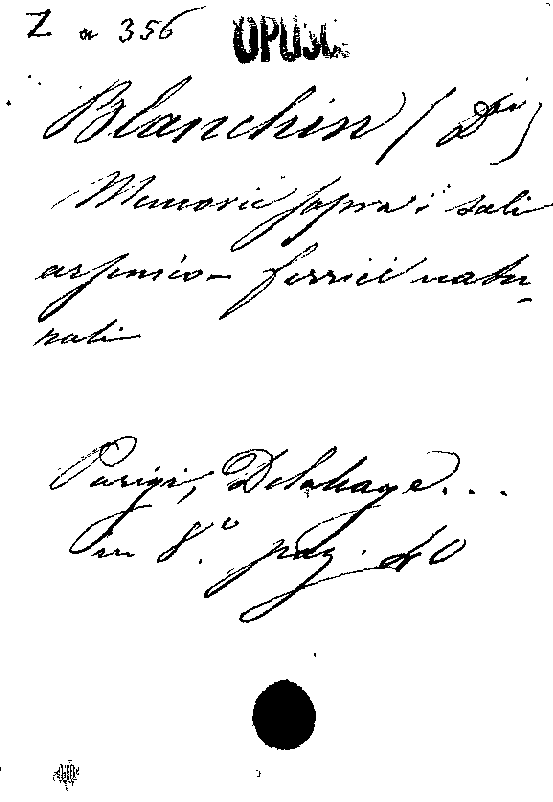 Z a 356 OPUSC.
Blanchin (Dr)
Memorie sopra i sali
arsenico-ferrici natu-
rali
Parigi, Delahaye...
in 8.º pag. 40